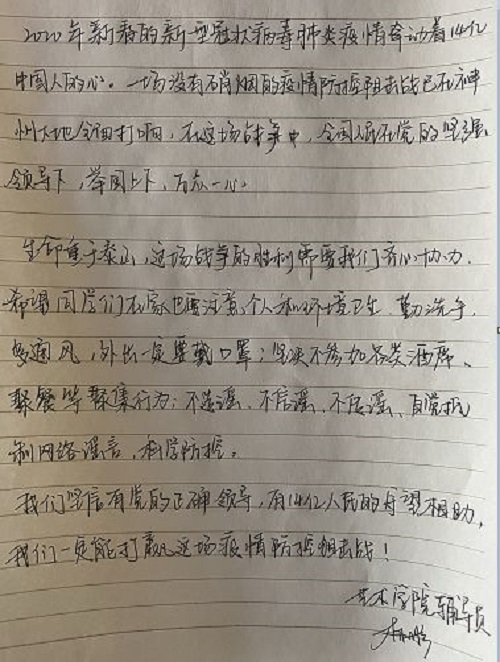 2020年新春的新型冠状病毒肺炎疫情牵动着14亿
中国人的心。一场没有硝烟的疫情防控阻击战已在神
州大地全面打响，在这场战争中，全国人民在党的坚强
领导下，举国上下，万众一心。
生命重于泰山，这场战争的胜利需要我们齐心协力，
希望同学们在家也要注意个人和环境卫生，勤洗手，
多通风，外出一定要戴口罩；坚决不参加各类酒席、
聚餐等聚集行为；不造谣、不信谣、不传谣、自觉抵
制网络谣言，科学防控。
我们坚信有党的正确领导，有14亿人民的守望相助，
我们一定能打赢这场疫情防控阻击战！
艺术学院辅导员